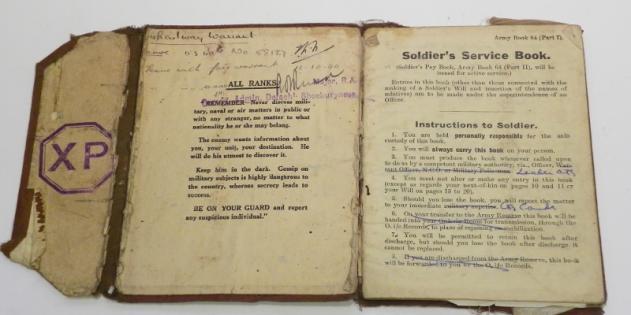 XP
Railway Warrant
11-10-40
ALL RANKS
Major, R.A.
Shoeburyness
REMEMBER—Never discuss mili-
tary, naval or air matters in public or
with any stranger, no matter to what
nationality he or she may belong.
The enemy wants information about
you, your unit, your destination. He
will do his utmost to discover it.
Keep him in the dark. Gossip on
military subjects is highly dangerous to
the country, whereas secrecy leads to
success.
BE ON YOUR GUARD and report
any suspicious individual."
Army Book 64 (Part I).
Soldier's Service Book.
(Soldier's Pay Book, Army Book 64 (Part II), will be
issued for active service.)
Entries in this book (other than those connected with the
making of a Soldier's Will and insertion of the names of
relatives) are to be made under the superintendence of an
Officer.
Instructions to Soldier.
1. You are held personally responsible for the safe
custody of this book.
2. You will always carry this book on your person.
3. You must produce the book whenever called upon
to do so by a competent military authority, viz., Officer, War-
rant Officer, N.C.O. or Military Policeman.
4. You must not alter or make any entry in this book
(except as regards your next-of-kin on pages 10 and 11 or
your Will on pages 15 to 20).
5. Should you lose the book, you will report the matter
to your immediate military superior.
6. On your transfer to the Army Reserve this book will be
handed into your Orderly Room for transmission, through the
O. i/c Records, to place of rejoining on mobilization.
7. You will be permitted to retain this book after
discharge, but should you lose the book after discharge it
cannot be replaced.
8. If you are discharged from the Army Reserve, this book
will be forwarded to you by the O. i/c Records.